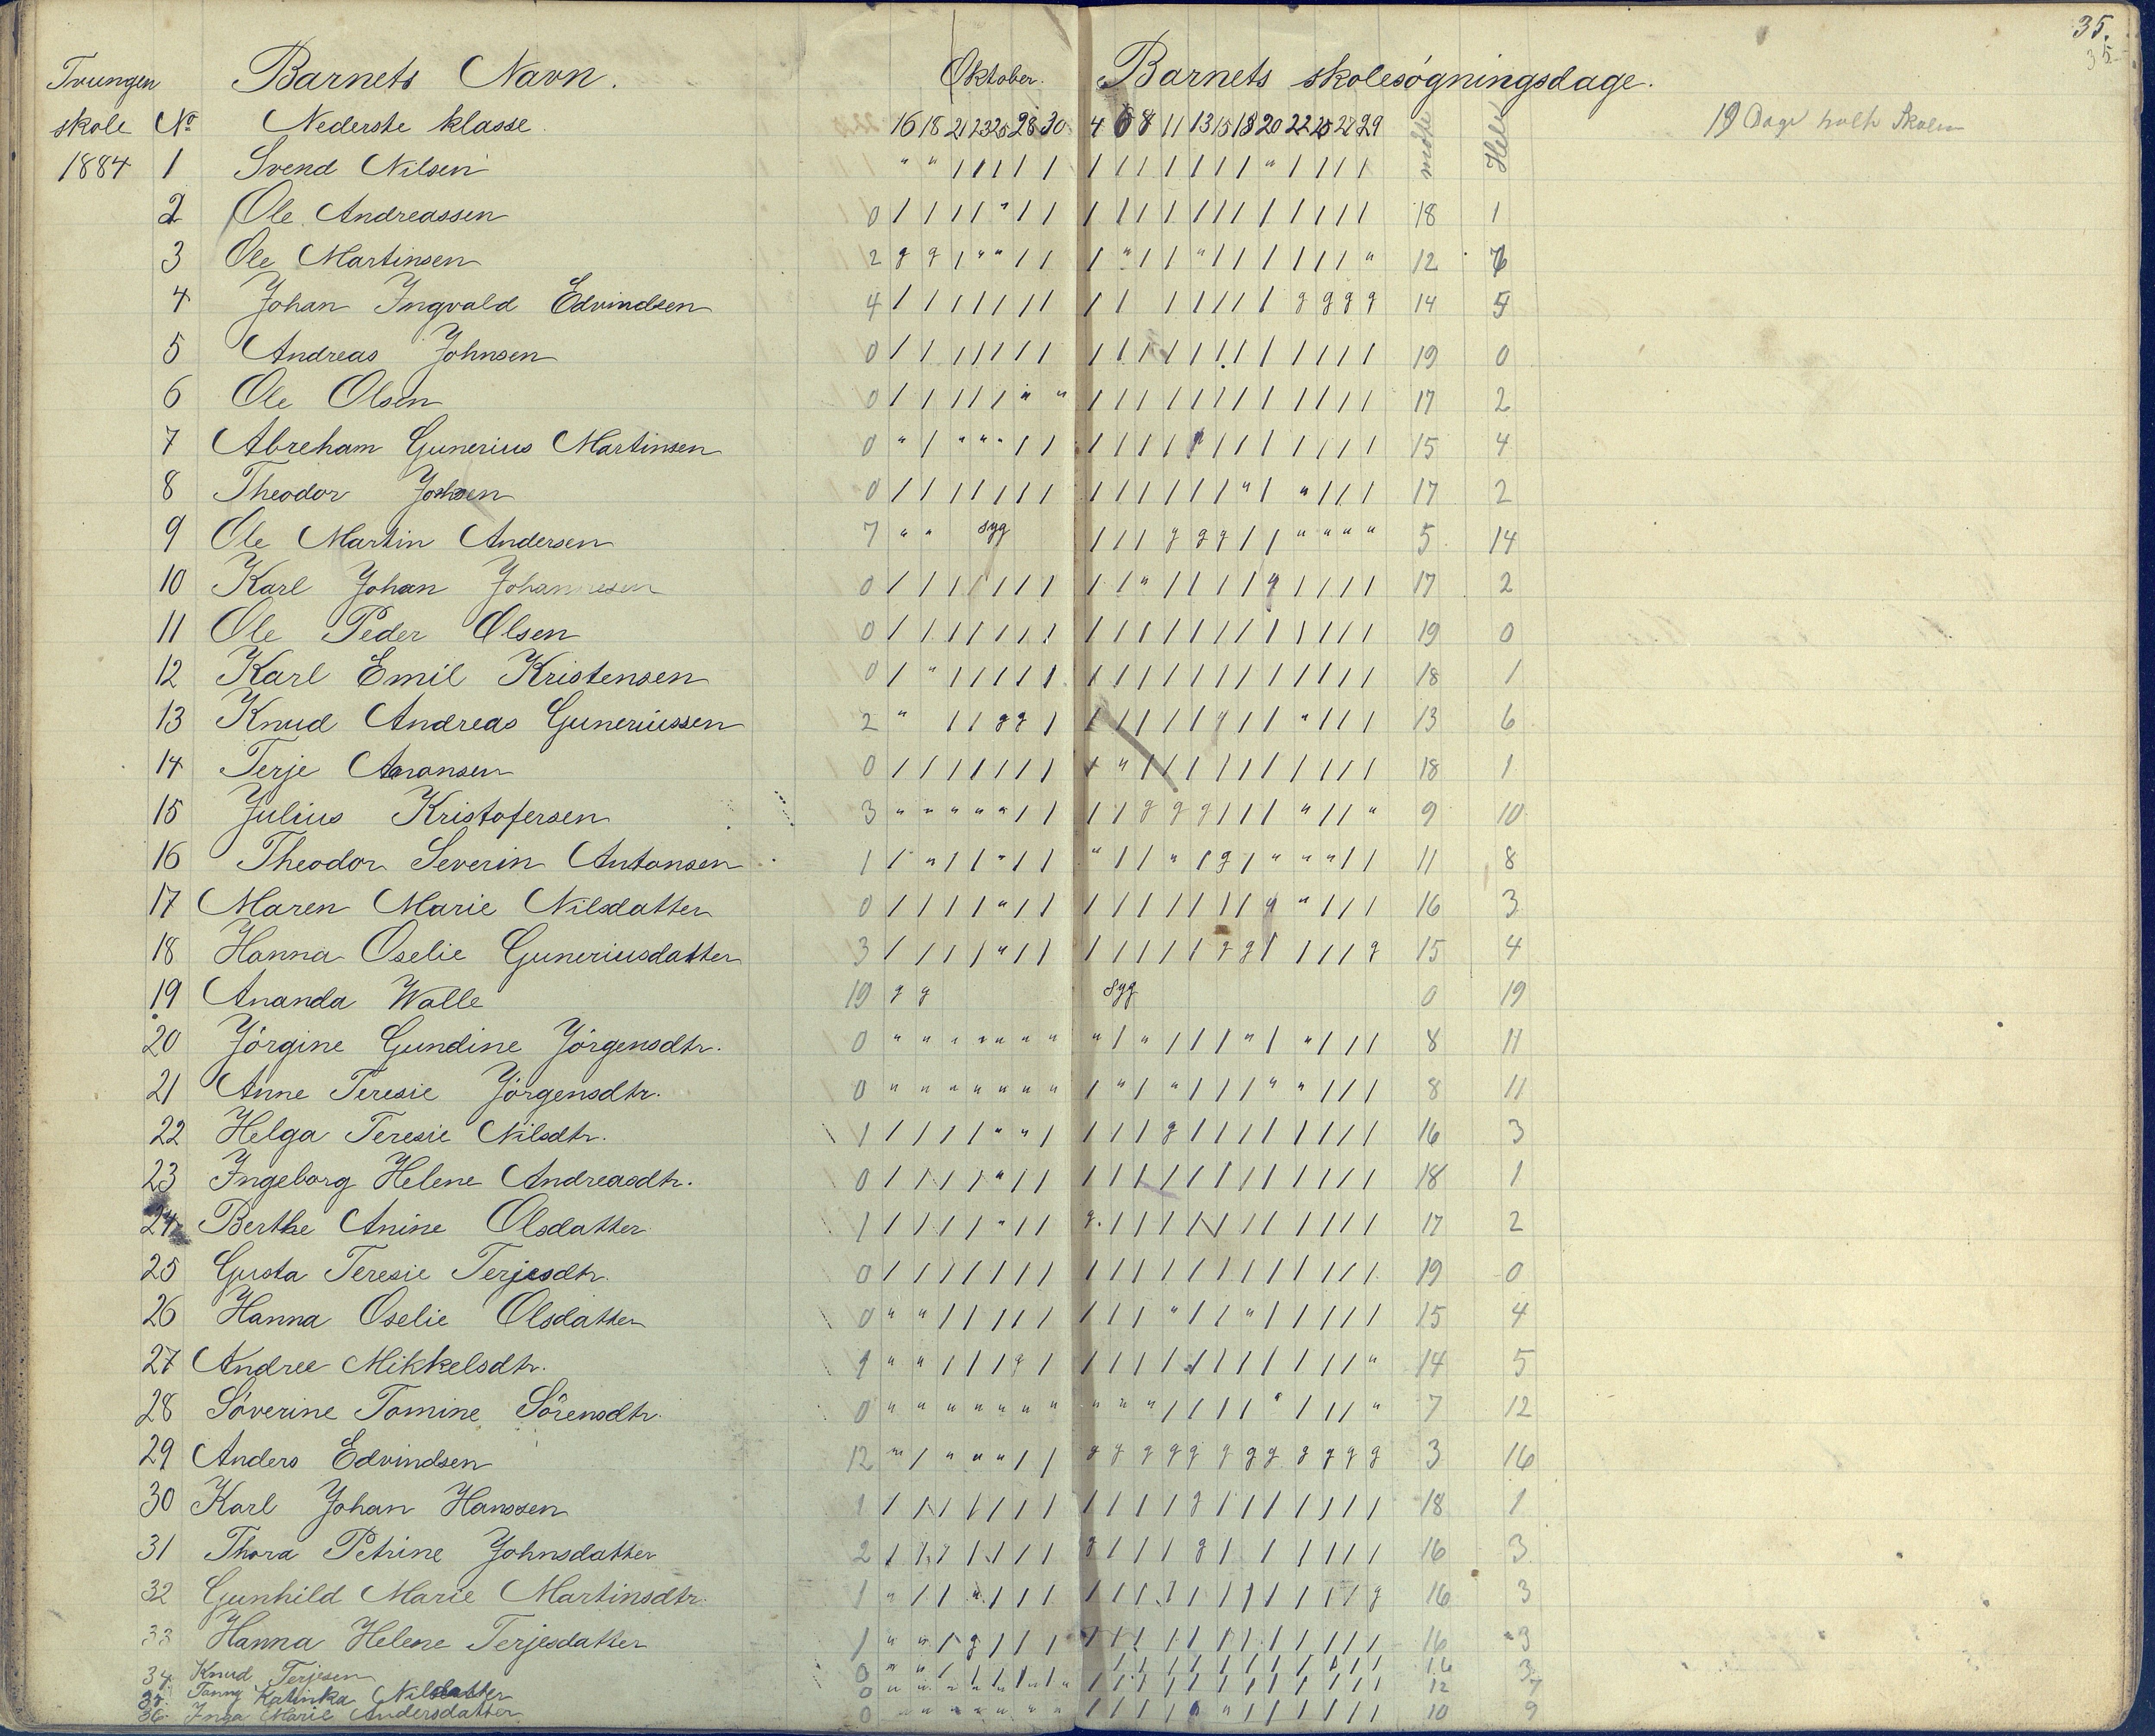 35.
35
Tvungen Barnets Navn. Oktober. Barnets skolesøgningsdage.
skole No Nederste klasse. 16 18 21 23 25 28 30 4 6 8 11 13 15 18 20 22 25 27 29 mødte Hele 19 Dage holdt Skolen
1884 1 Svend Nilsen " " / / / / / / / / / / / / / " / / / /
2 Ole Andreassen 0 / / / / " / / / / / / / / / / / / / / 18 1
3 Ole Martinsen 2 g g / " " / / / " / / " / / / / / / " 12 7
4 Johan Ingvald Edvindsen 4 / / / / / / / / / / / / / / g g g g 14 5
5 Andreas Johnsen 0 / / / / / / / / / / / / / / / / / / / 19 0
6 Ole Olsen 0 / / / / / " " / / / / / / / / / / / / 17 2
7 Abreham Gunerius Martinsen 0 " / " " " / / / / / / / / / / / / / / 15 4
8 Theodor 0 / / / / / / / / / / / / / " / " / / / 17 2
9 Ole Martin Andersen 7 " " syg / / / g g g / / " " " " 5 14
10 Karl Johan Johannesen 0 / / / / / / / / / " / / / / g / / / / 17 2
11 Ole Peder Olsen 0 / / / / / / / / / / / / / / / / / / / 19 0
12 Karl Emil Kristensen 0 / " / / / / / / / / / / / / / / / / / 18 1
13 Knud Andreas Guneriussen 2 " / / g g / / / / / / g / / " / / / 13 6
14 Terje Aanonsen 0 / / / / / / / / " / / / / / / / / / / 18 1
15 Julius Kristofersen 3 " " " " " / / / / g g g / / / " / / " 9 10
16 Theodor Severin Antonsen 1 / " / / " / / " / / " / g / " " " / / 11 8
17 Maren Marie Nilsdatter 0 / / / / " / / / / / / / / / g " / / / 16 3
18 Hanna Oselie Guneriusdatter 3 / / / / " / / / / / / / g g / / / / g 15 4
19 Ananda Walle 19 g g syg 0 19
20 Jörgine Gundine Jörgensdtr. 0 " " " " " " " " / " / / / " / " / / / 8 11
21 Anne Teresie Jörgensdtr. 0 " " " " " " " / " / " / / / " " / / / 8 11
22 Helga Teresie Nilsdtr. 1 / / / / " " / / / / g / / / / / / / / 16 3
23 Ingeborg Helene Andreasdtr. 0 / / / / " / / / / / / / / / / / / / / 18 1
24 Berthe Anine Olsdatter 1 / / / / " / / g. / / / / / / / / / / / 17 2
25 Gusta Teresie Terjesdtr. 0 / / / / / / / / / / / / / / / / / / / 19 0
26 Hanna Oselie Olsdatter 0 " " / / / / / / / / " / / " / / / / / 15 4
27 Andree Mikkelsdtr. 1 " " / / / g / / / / / / / / / / / / " 14 5
28 Söverine Tomine Sörensdtr. 0 " " " " " " " " " " / / / / " / / / " 7 12
29 Anders Edvindsen 12 " / " " " / / g g g g g g g g g g g g 3 16
30 Karl Johan Hanssen 1 / / / / / / / / / / / g / / / / / / / 18 1
31 Thora Petrine Johnsdatter 2 / / / / / / / g / / / g / / / / / / / 16 3
32 Gunhild Marie Martinsdtr. 1 " / / " / / / / / / / / / / / / / / g 16 3
33 Hanna Helene Terjesdatter 1 " " / g / / / / / / / / / / / / / / / 16 3
34 Knud Terjesen 0 " " / / / / / / / / / / / / / / / / 16 3
35 Tanny Katinka Nilsdatter 0 " " " " " " " / / / / / / / / / / / / 12 7
36 Inga Marie Andersdatter 0 " " " " " " " / / / / " " / / / / / / 10 9